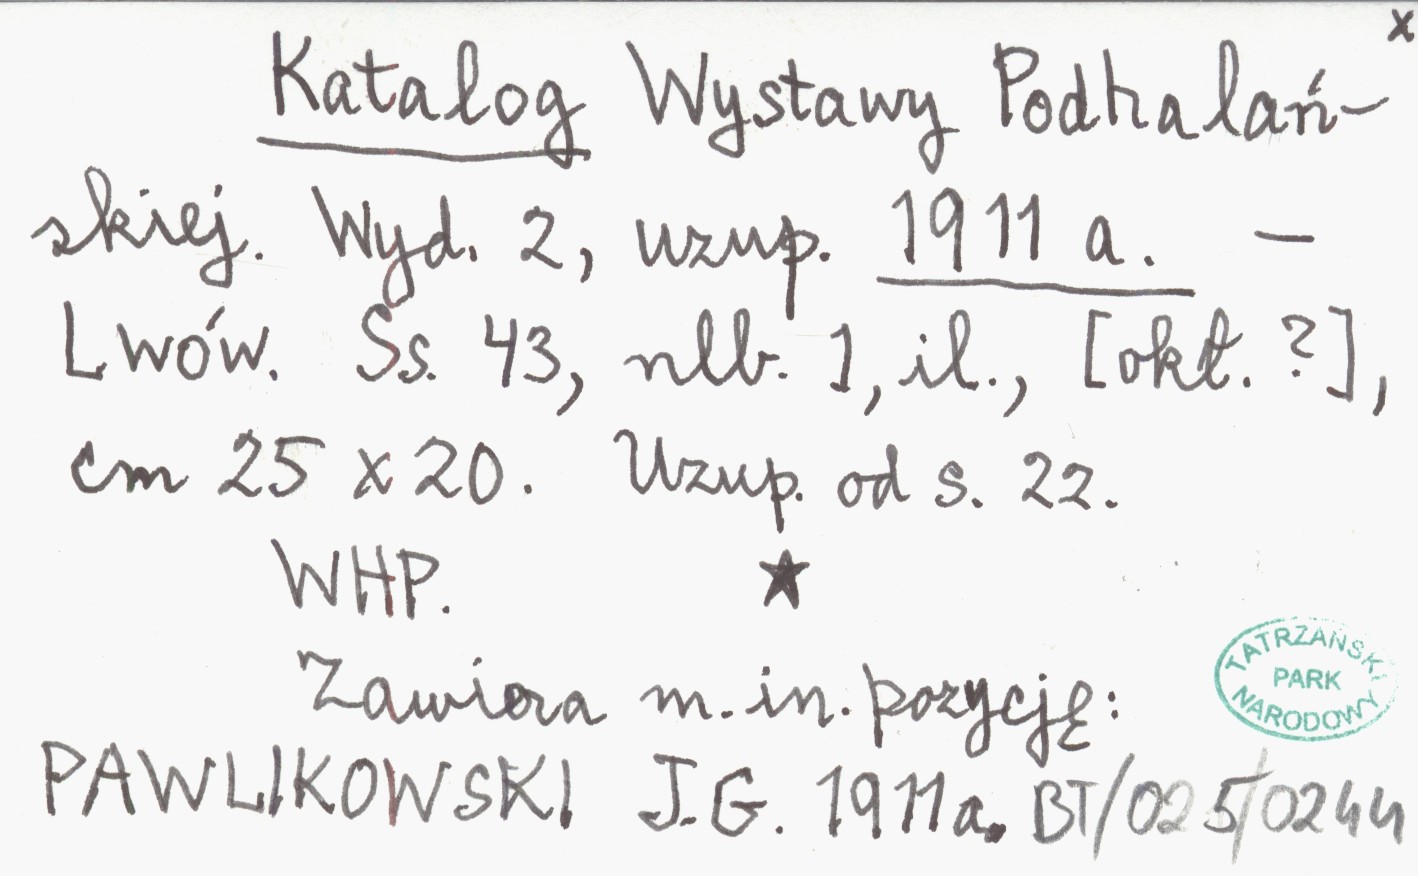 x
Katalog Wystawy Podhalań-
skiej. Wyd. 2, uzup. 1911 a. –
Lwów. Ss. 43, nlb. 1, il., [okł. ?],
cm 25 x 20. Uzup. od s. 22.
WHP. ★
Zawiera m. in. pozycję:
PAWLIKOWSKI J.G. 1911a. BT/025/0244
TATRZAŃSKI
PARK
NARODOWY